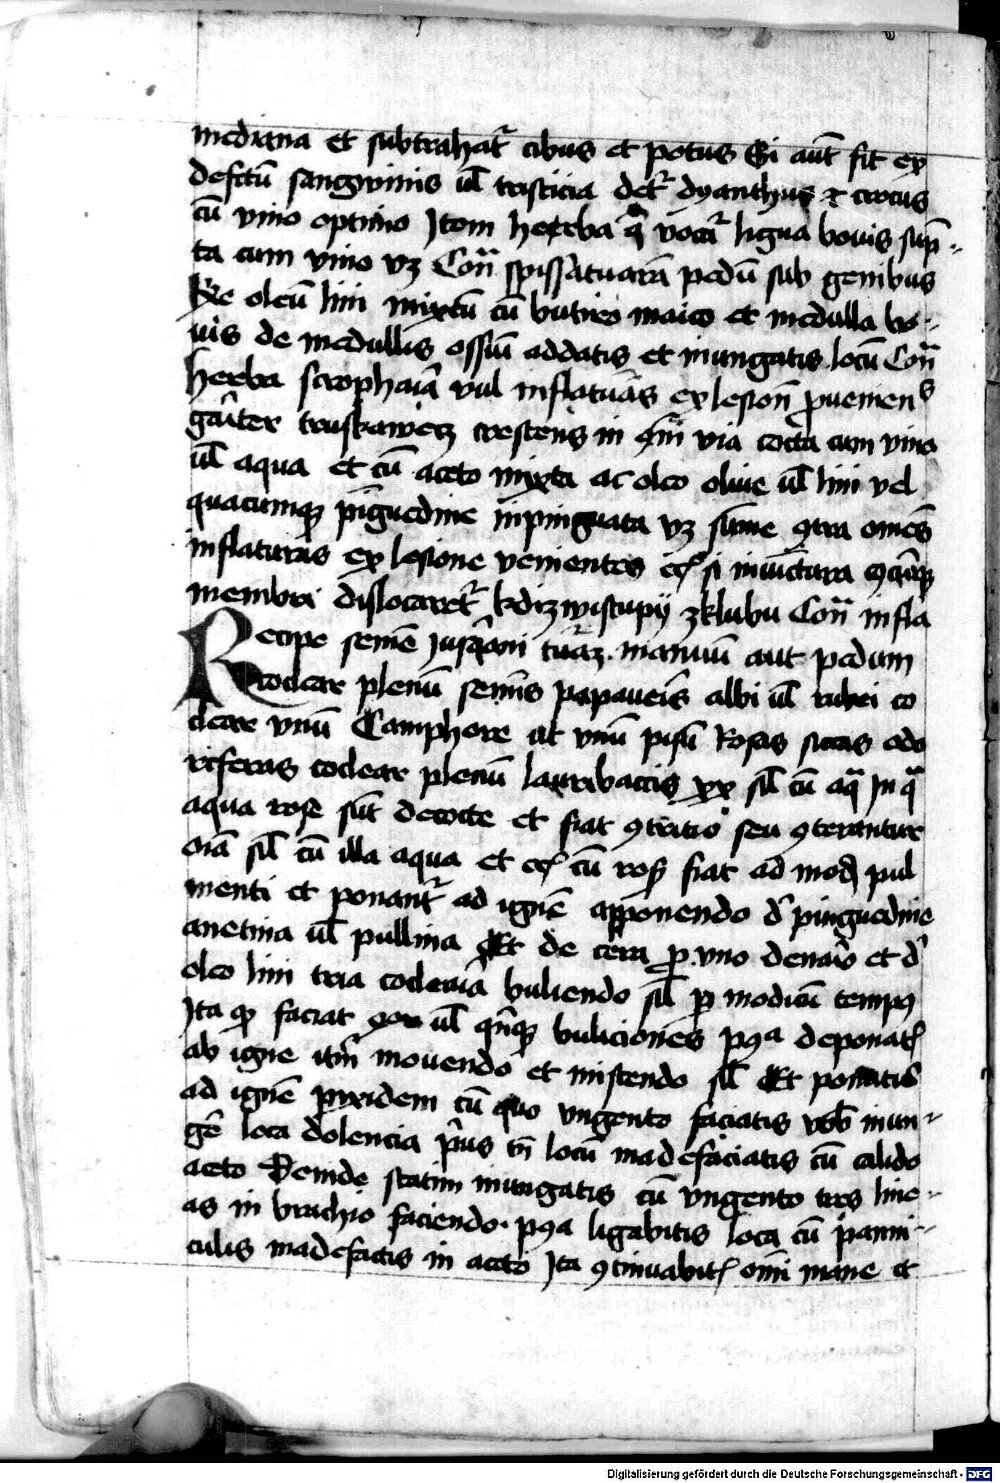 mediana et subtrahat᷑ cibus et potus Si aūt fit ex
defctū sangwinis ul̄ tristicia det᷑ dyanthus & crocus
cū vino optimo Item herba q̄ vocat᷑ ligua bovis sup̄
ta cum vino vꝫ Con̄ spissatuarā pedū sub genibus
Rē oleū lini mixtū cū butiro maico et medulla bo
vis de medullis ossiū addatis et inungatis locū Con̄
herba scrophaiā vul inflatuās ex lesion̄ ꝓueniens
gāiter truskawecz crescens in via cocta cum vino
ul̄ aqua et cū aceto mixta ac oleo oliue ul̄ lini vel
quacumqꝫ pīguedine inpinguata vꝫ sūme ꝯtra om̄es
inflaturas ex lesione venientes si iunctura
membri dislocaret᷑ kdiz wistupij zklubu Con̄ infla
Recipe semē Jusq̄ami manuū aut pedum
coclear plenū semīs papaueīs albi ul̄ rubei co
cleare vnū Camphore at vnū pisū Rosas siccas odo
riferas coclear plenū lauribaccis xx sil̄ cū aq̄ In q̄
aqua rose sūt decocte et fiat ꝯtritio seu ꝯterantur
om̄ia sil̄ cū illa aqua et cū ros fiat ad mod pul
menti et ponant᷑ ad ignē apponendo d̓ pinguedine
anetina ul̄ pullina Et de cera ꝓ vno denar̄ et d̓
oleo lini tria coclearia buliendo sil̄ ꝑ modicū tempꝰ
Ita ꝙ faciat ul̄ qn̄qꝫ buliciones pꝰa deponat᷑
ab igne itm̄ movendo et miscendo sil̄ Et ponatis
ad ignē pixidem cū quo vngento faciatis vob̄ inun
gē loca dolencia p̄us tn̄ locū madefaciatis cū calido
aceto Deinde statim inungatis cū vngento tres line
as in brachio faciendo pꝰa ligabitis loca cū panni
culis madefactis in aceto Ita ꝯtinuabit᷑ om̄i mane et
Digitalisierung gefördert durch die Deutsche Forschungsgemeinschaft - DFG